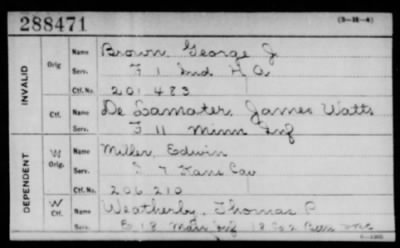 288471
(3-35-4)
INVALID
Orig
Name Brown, George J.
Serv. F 1 Ind H A
Ctf. No. 201 483
Ctf.
Name De Lamater, James Watts
Serv. F 11 Minn Inf
DEPENDENT
W Orig.
Name Miller, Edwin
Serv. 7 Kans Cav
Ctf. No. 206 210
W Ctf.
Name Weatherby, Thomas C
Serv. E 18 Inf 18 Co 2 Batt